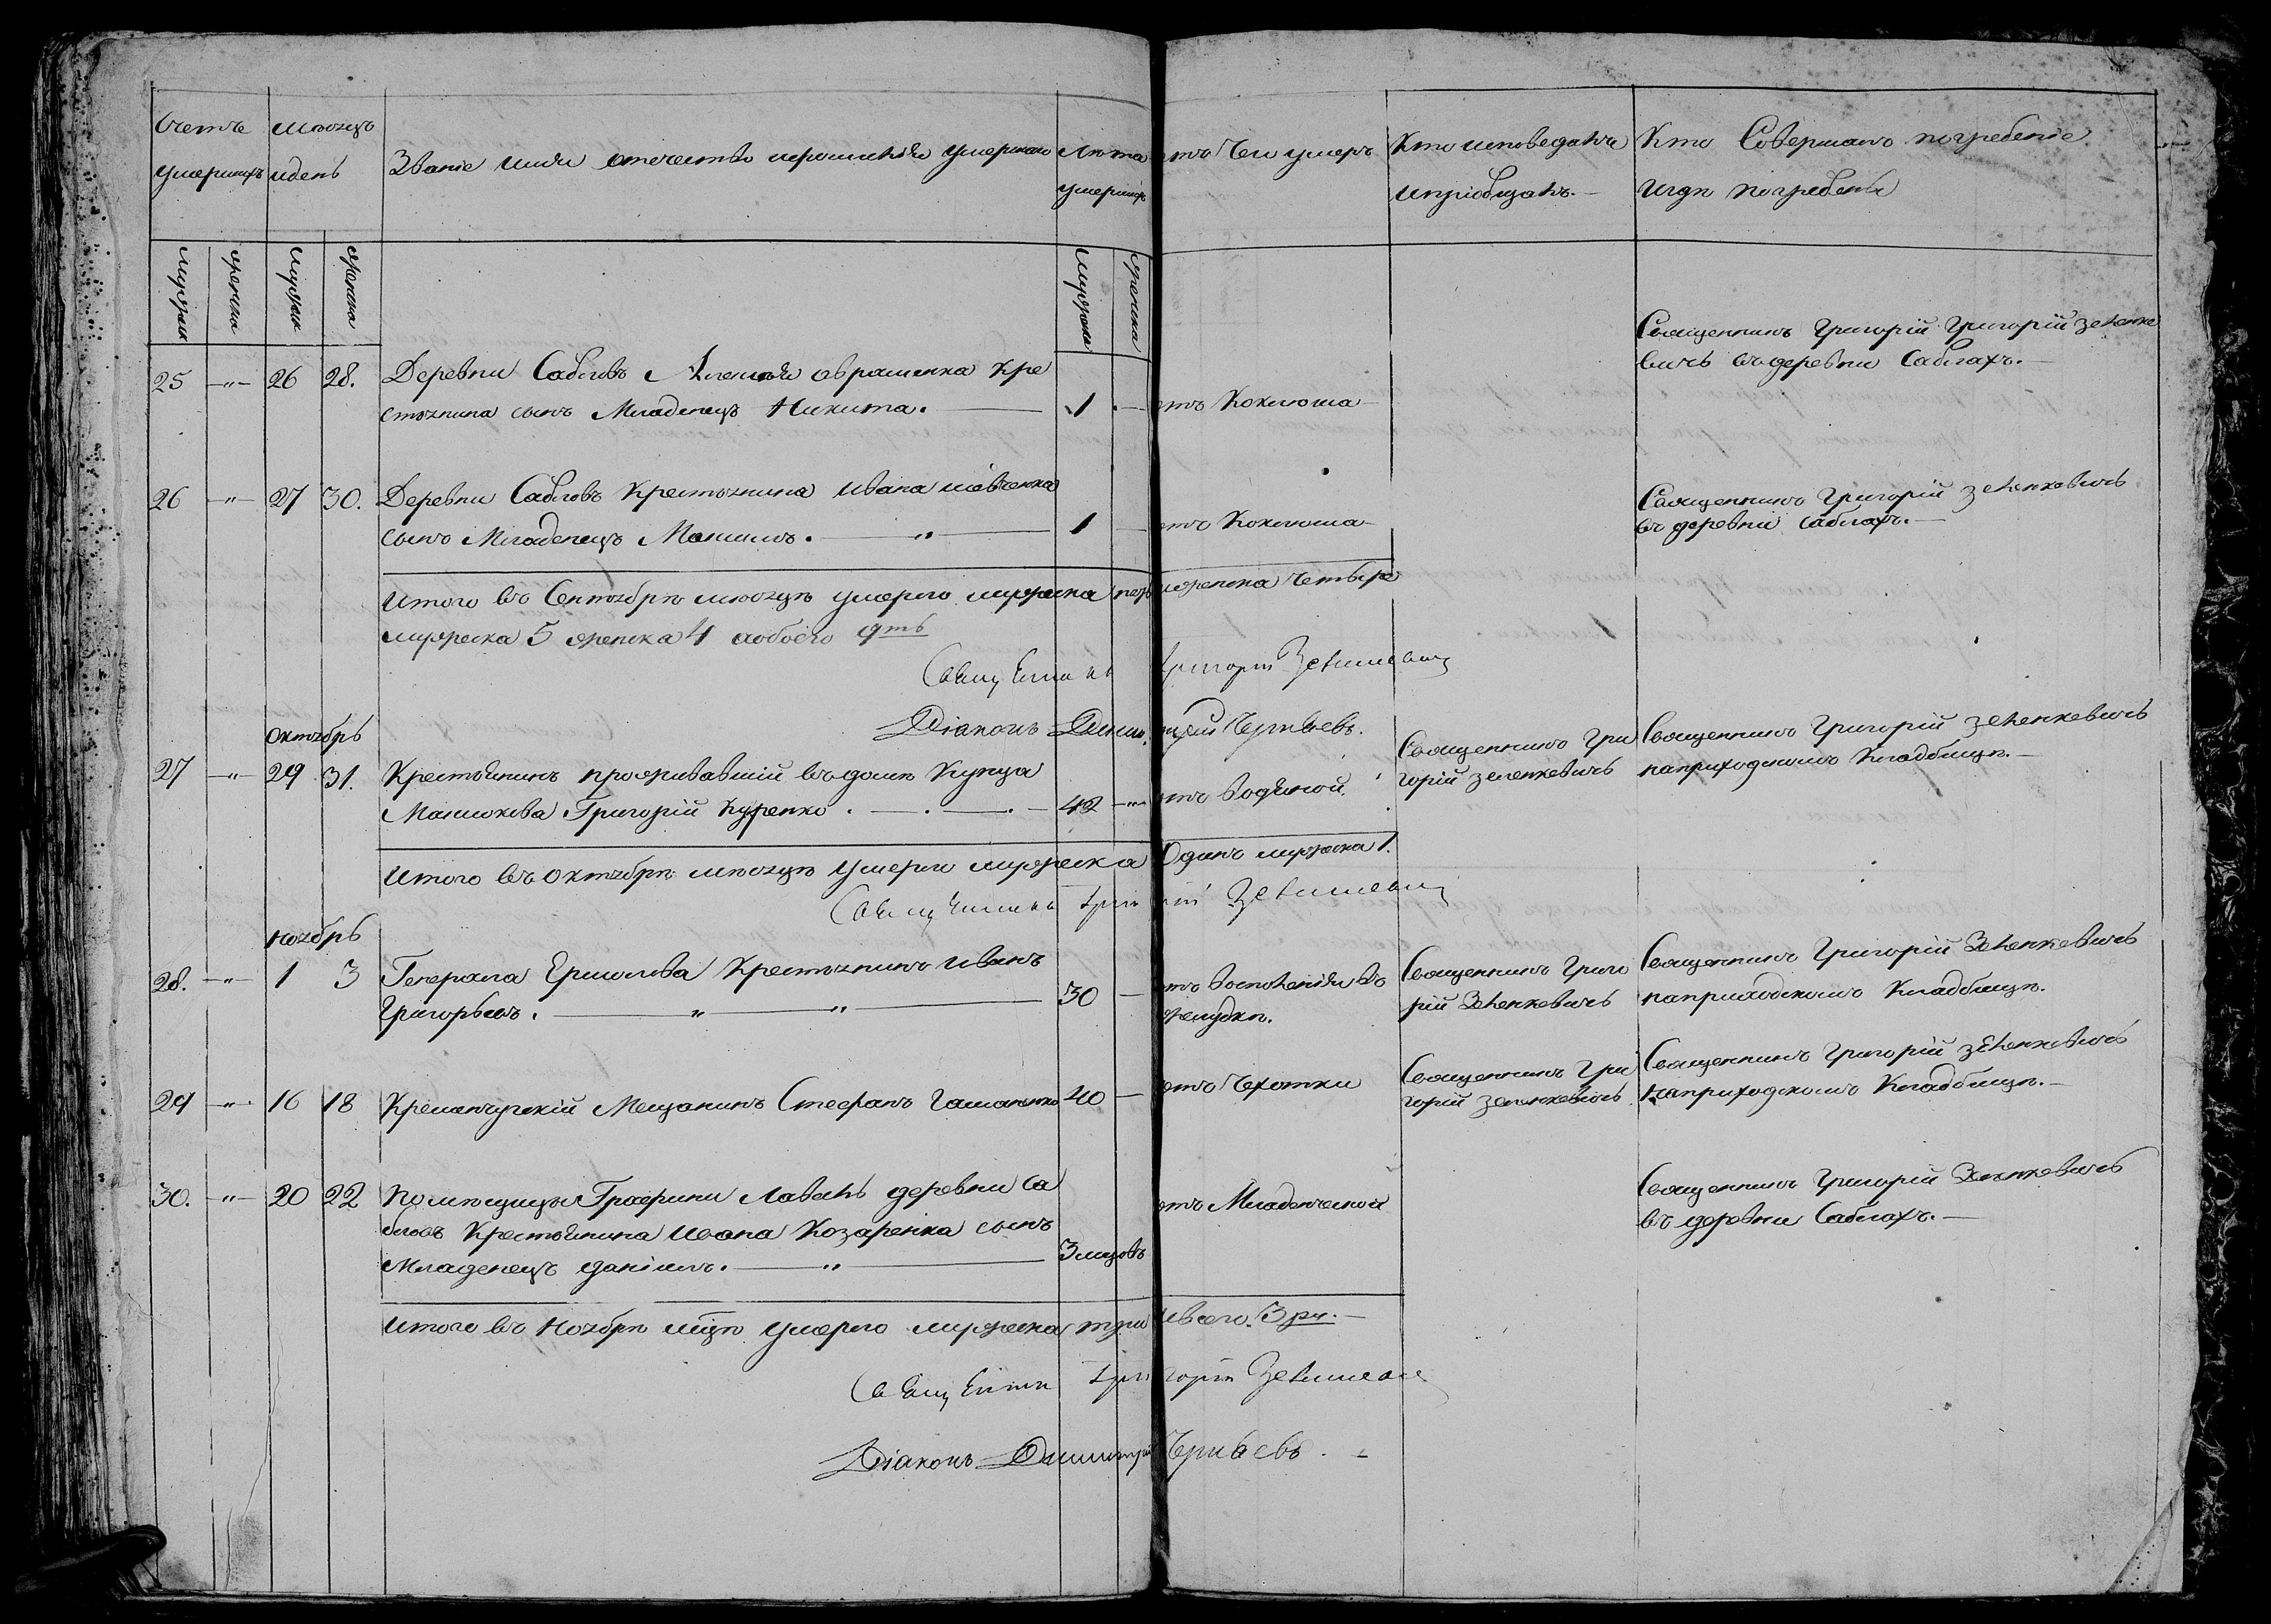 Счетъ умершихъ
Мѣсяцъ и день
Званіе имя отечество и фамилія умершаго
Лѣта умершихъ
отъ Чего умеръ
Кто исповедалъ и пріобщалъ.
Кто Совершалъ погребеніе и гдѣ погребены
мужеска
женска
мужеска
женска
мужеска
женска
25 —„— 26 28. Деревни Сабловъ Алексѣя Авраменка Кре
стьянина сынъ Младенецъ Никита. — 1 — отъ Коклюша
Священникъ Григорій Григорій Зеленке
вичъ въ деревни Саблахъ.
26 —„— 27 30. Деревни Сабловъ Крестьянина Ивана Шевченка
сынъ Младенецъ Максимъ. —„— 1 — отъ Коклюша
Священникъ Григорій Зеленкевичъ
въ деревни Саблахъ.
Итого въ Сентябрѣ мѣсяцѣ умерло мужеска женска Четыре
мужеска 5 женска 4 а обоего 9ть
Священникъ Григорій Зеленкевичъ
Діаконъ Димитрій
Октябрь
27 —„— 29 31. Крестьянинъ проживавшій въ домѣ Купца
Машкова Григорій Куренко. — 42 —„— отъ Водяной.
Священникъ Гри
горій Зеленкевичъ
Священникъ Григорій Зеленкевичъ
на приходскомъ Кладбищѣ.
Итого въ Октябрѣ мѣсяцѣ умерло мужеска Одинъ мужеска 1.
Священникъ Григорій Зеленкевичъ
Ноябрь
28. —„— 1 3 Генерала Ермолова Крестьянинъ Иванъ
Григорьевъ. —„—„— 30 — отъ Воспаленія въ
желудкѣ.
Священникъ Григо
рій Зеленкевичъ
Священникъ Григорій Зеленкевичъ
на приходскомъ Кладбищѣ.
29 —„— 16 18 Кременчугскій Мещанинъ Стефанъ 40 — отъ Чехотки
Священникъ Гри
горій Зеленкевичъ
Священникъ Григорій Зеленкевичъ
на приходскомъ Кладбищѣ.
30. —„— 20 22 Помѣщицы Графини Лаваль деревни Са
бловъ Крестьянина Ивана Козаренка сынъ
Младенецъ Даніилъ. —„— 3 мцовъ отъ Младенческой
Священникъ Григорій Зеленкевичъ
въ деревни Саблахъ.
Итого въ Ноябрѣ мцѣ умерло мужеска три и всего 3ри.
Священникъ Григорій Зеленкевичъ
Діаконъ Димитрій